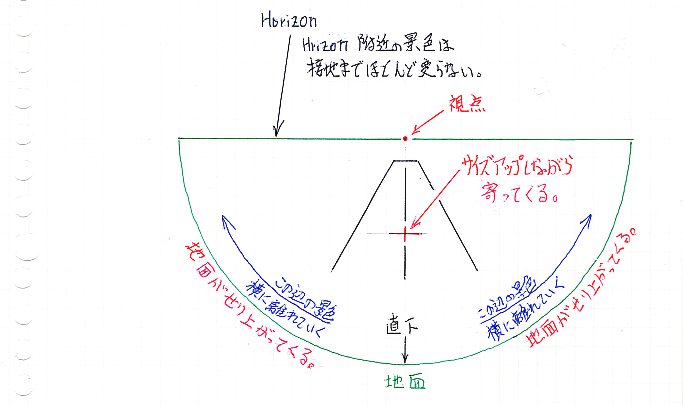 Horizon
Hrizon 附近の景色は
接地までほとんど変らない。
視点
サイズアップしながら
寄ってくる。
地面がせり上がってくる。
この辺の景色
横に離れていく
この辺の景色
横に離れていく
地面がせり上がってくる。
直下
地面